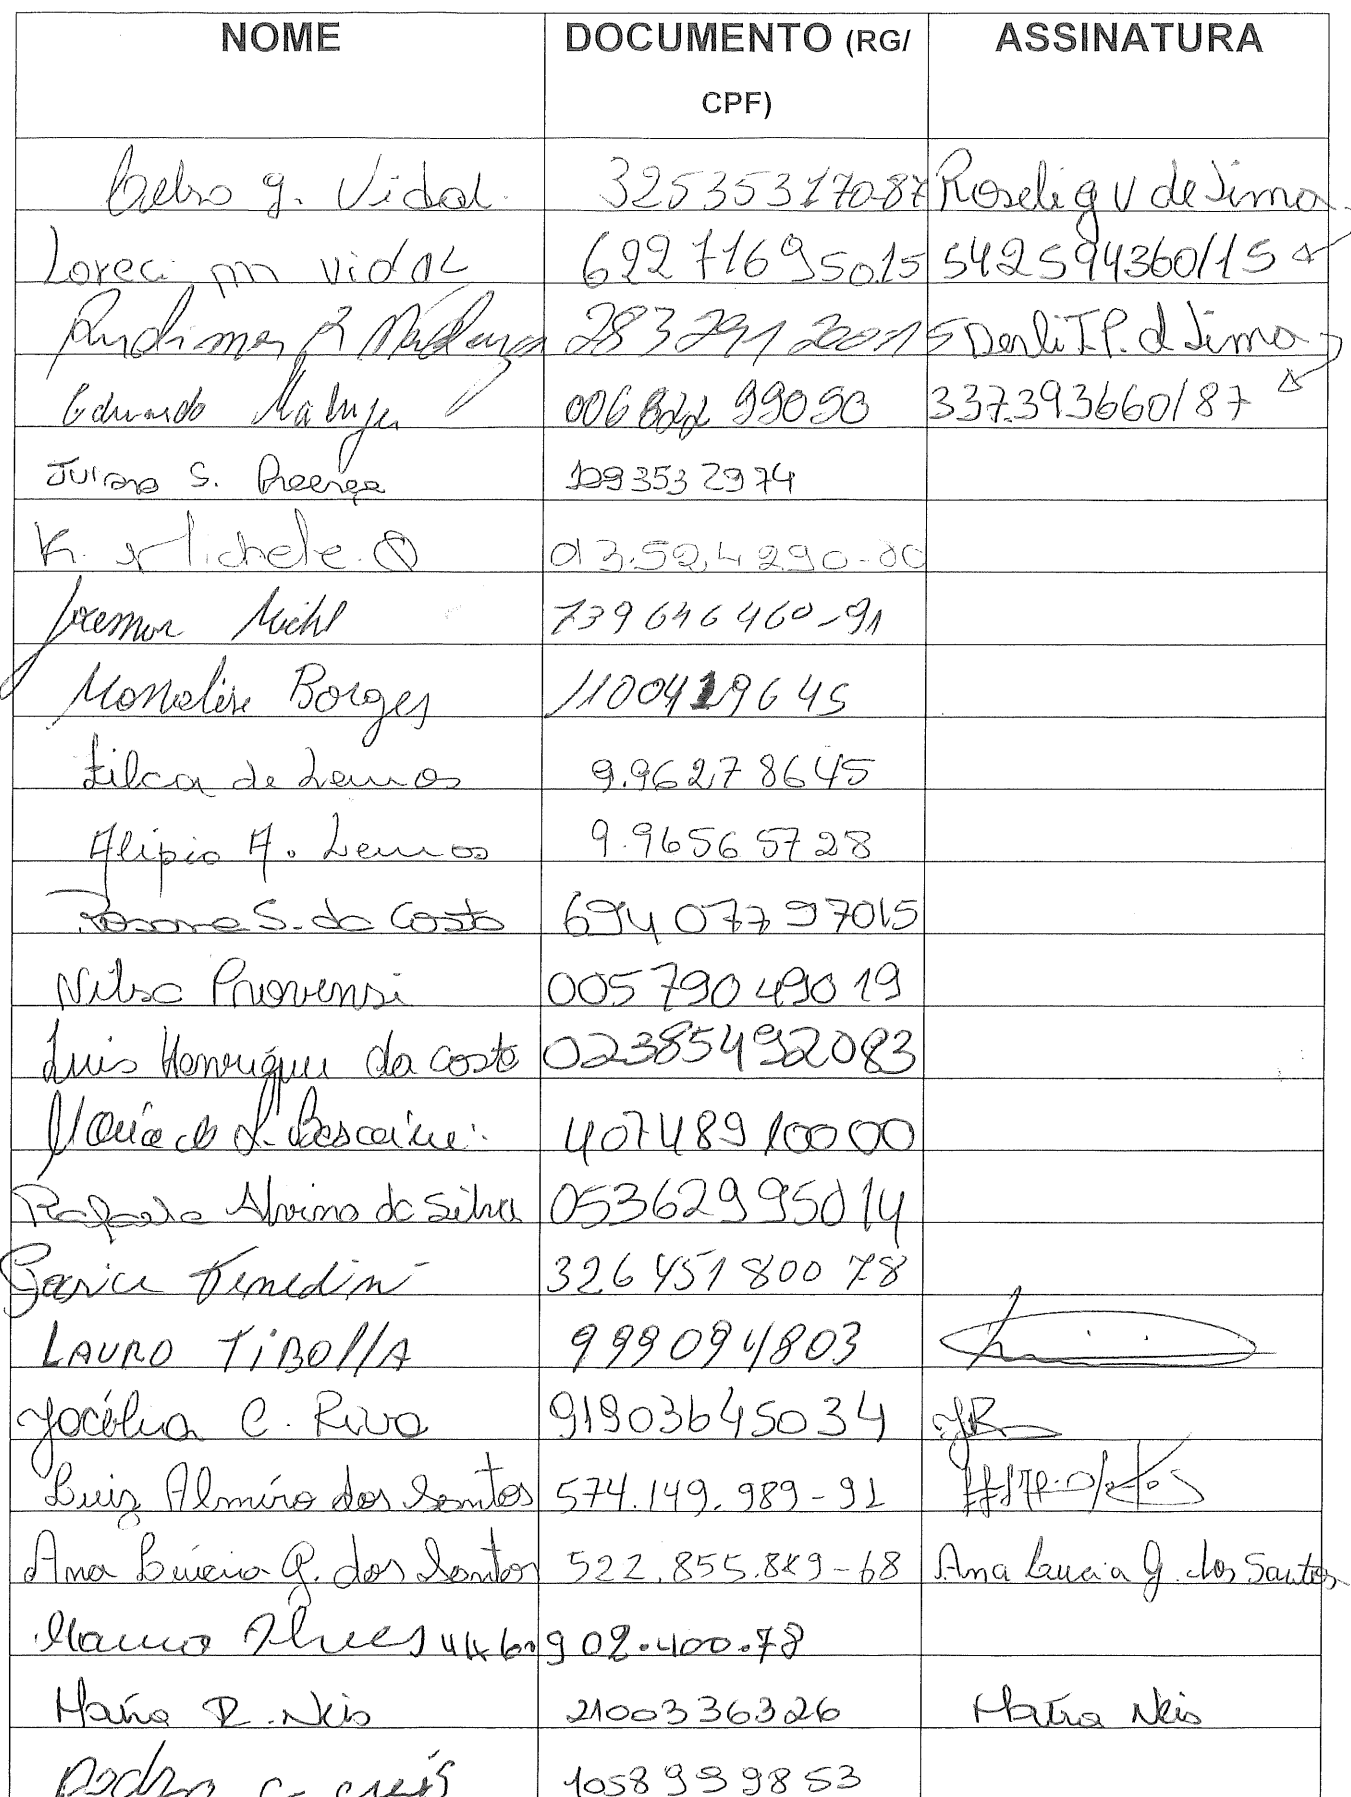 NOME DOCUMENTO (RG/ ASSINATURA
CPF)
Celso g. Vidal. 32535317087 Roseli g V de Lima
Loreci m vidal 62271695015 542594360/15
28329120015 Derli T.P. d Lima
Eduardo 99050 337.393660/87
S. 1093532974
K. Michele.
Michl 739646460-91
Monalise Borges 1100419645
Zilca de Lemos 9.96278645
Alipio A. Lemos 9.96565728
Rosane S. da Costa 69407797015
Nilso Provensi 00579049019
Luis Henrique da costa 02385492083
Maria de L. 40748910000
Rafaela Alvino da Silva 05362995014
32645180078
LAURO TiBOllA 999094803
Jocélia C. Riva 91903645034 JR
Luiz Almiro dos Santos 574.149.989-91
Ana Lúcia G. dos Santos 522.855.889-68 Ana Lucia G. dos Santos
Alves 902.400.78
Maria R. Neis 2100336326 Maria Neis
1058999853